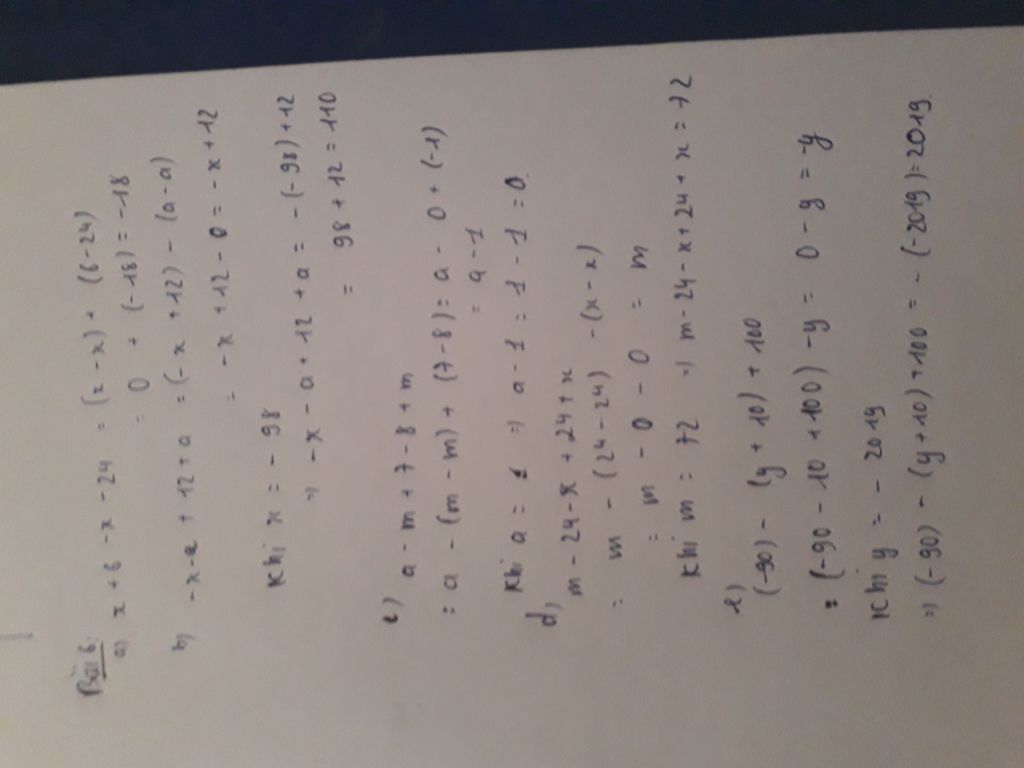 Bài 6:
a) x + 6 - x - 24 = (x - x) + (6 - 24)
= 0 + (-18) = -18
b) -x - a + 12 + a = (-x + 12) - (a - a)
= -x + 12 - 0 = -x + 12
Khi x = -98
=) -x - a + 12 + a = -(-98) + 12
= 98 + 12 = 110
c) a - m + 7 - 8 + m
= a - (m - m) + (7 - 8) = a - 0 + (-1)
= a - 1
Khi a = 1 =) a - 1 = 1 - 1 = 0.
d) m - 24 - x + 24 + x
= m - (24 - 24) - (x - x)
= m - 0 - 0 = m
Khi m = 72 =) m - 24 - x + 24 + x = 72
e) (-90) - (y + 10) + 100
= (-90 - 10 + 100) - y = 0 - y = -y
Khi y = -2019
=) (-90) - (y + 10) + 100 = -(-2019) = 2019.